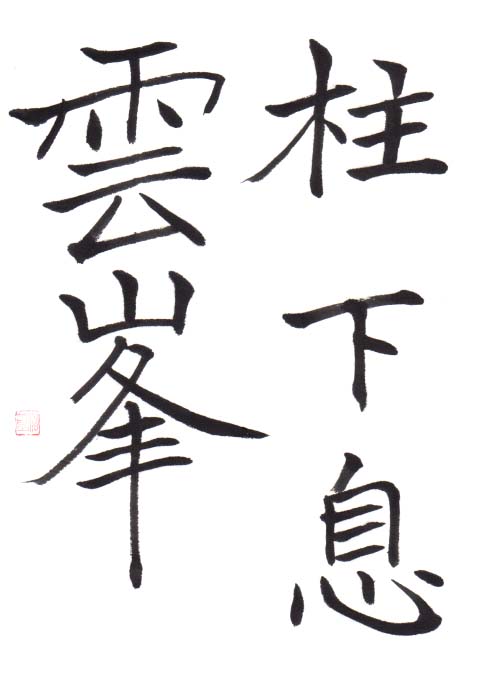 柱下息
雲峯